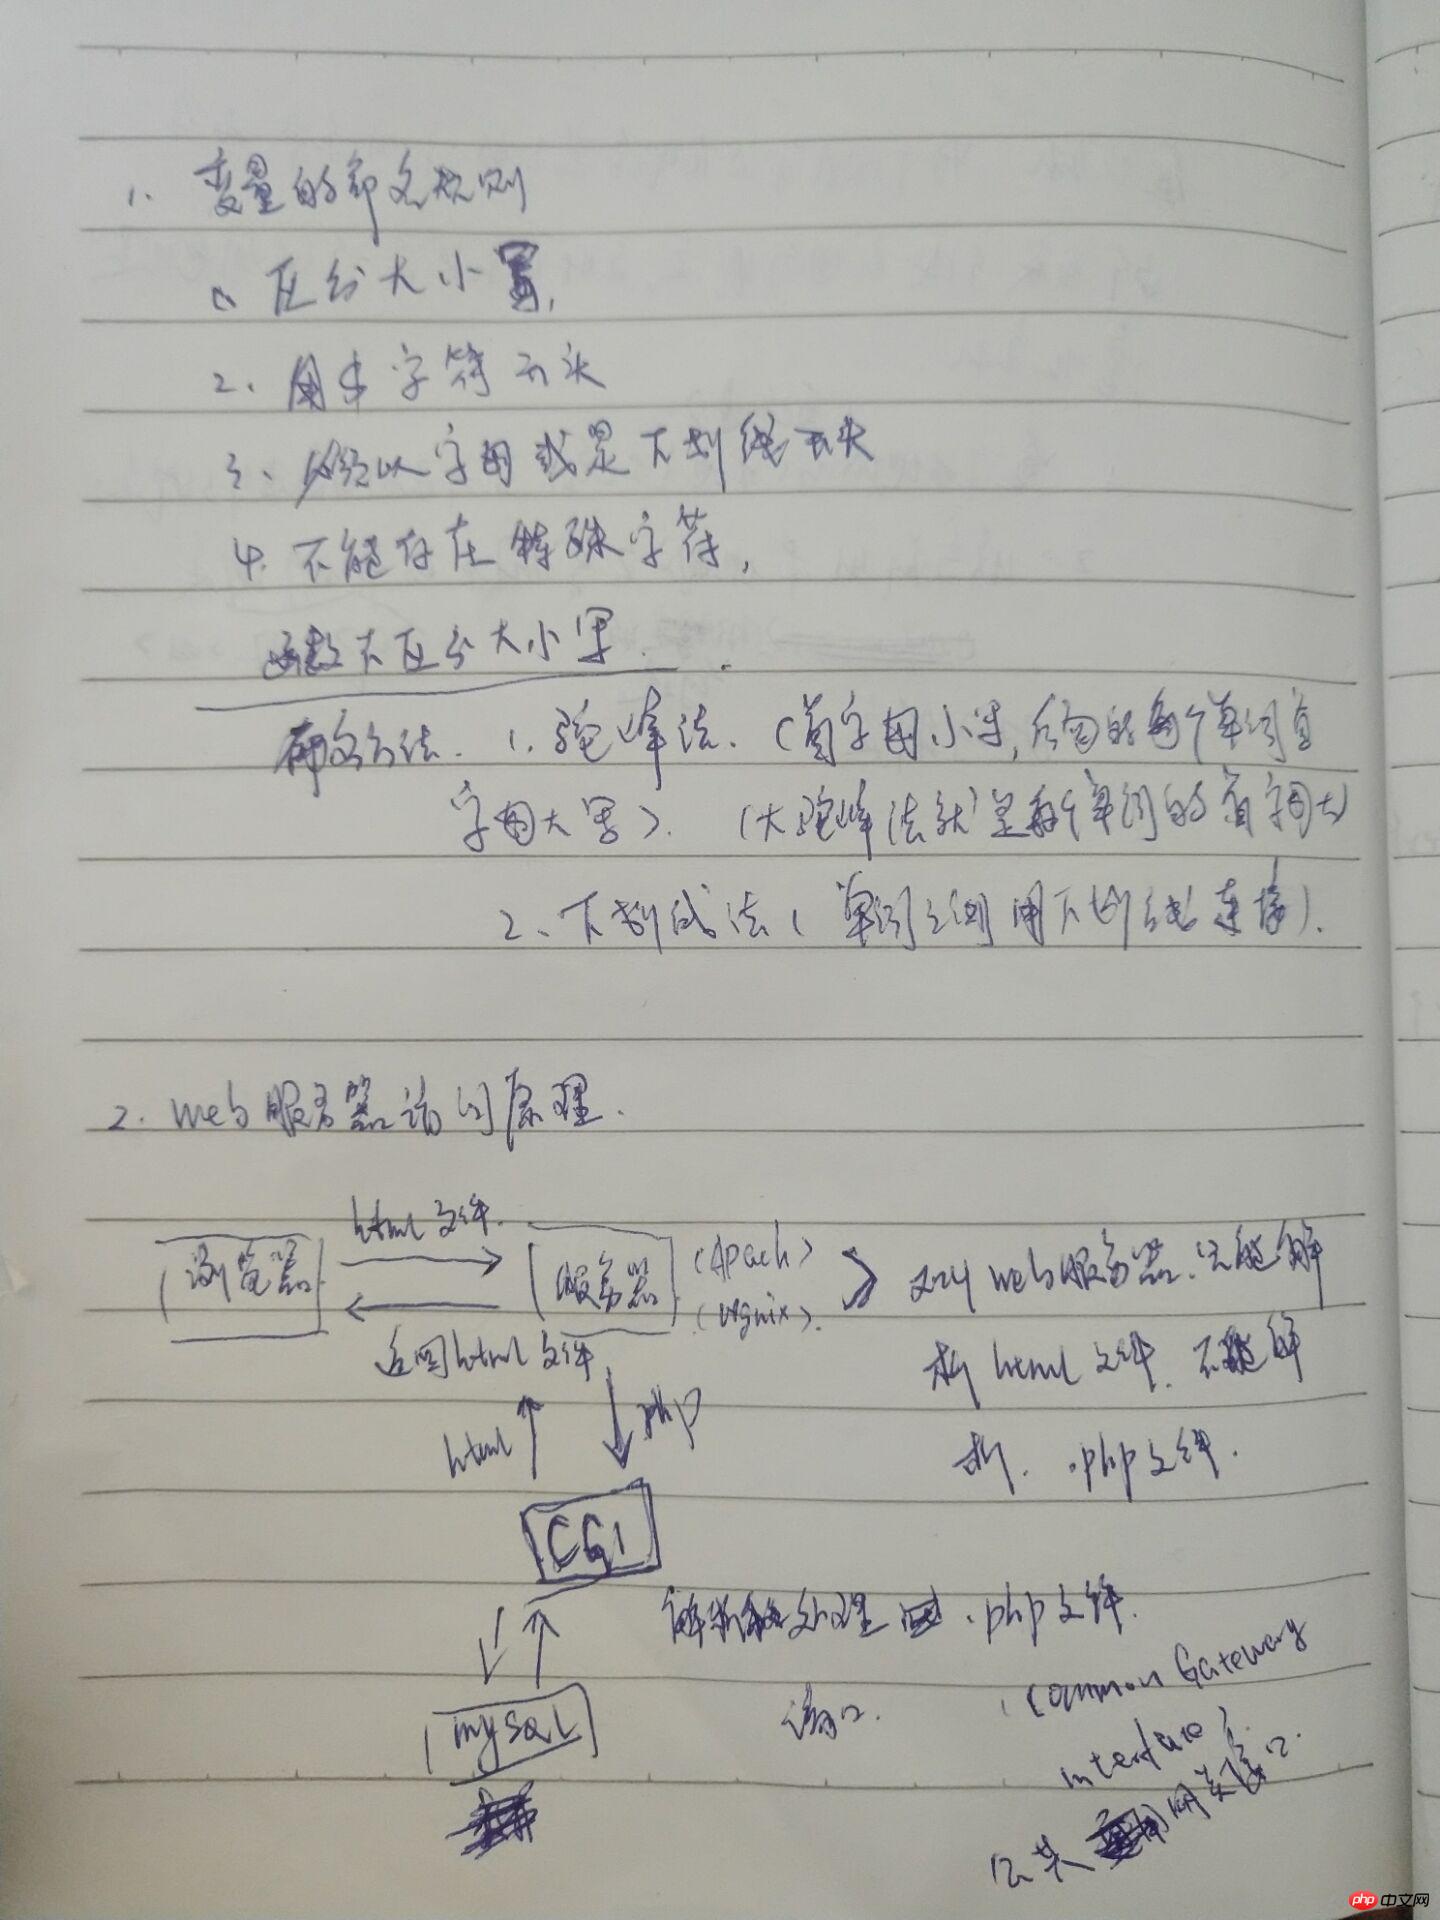 1. 变量的命名规则
1. 区分大小写,
2. 用$字符开头
3、必须以字母或是下划线开头
4. 不能存在特殊字符,
函数不区分大小写.
命名方法. 1. 驼峰法. (首字母小写, 后面的每个单词首
字母大写). (大驼峰法就是每个单词的首字母大)
2、下划线法(单词之间用下划线连接).
2. web服务器访问原理.
html文件.
浏览器
服务器
(Apach)
(Ngnix).
对web服务器.只能解
析html文件. 不能解
析. .php文件.
返回html文件
html
php
CGI
解析 处理 .php文件.
mysQL
接口.
(common Gateway
interface).
公共 网关接口.
php 中文网